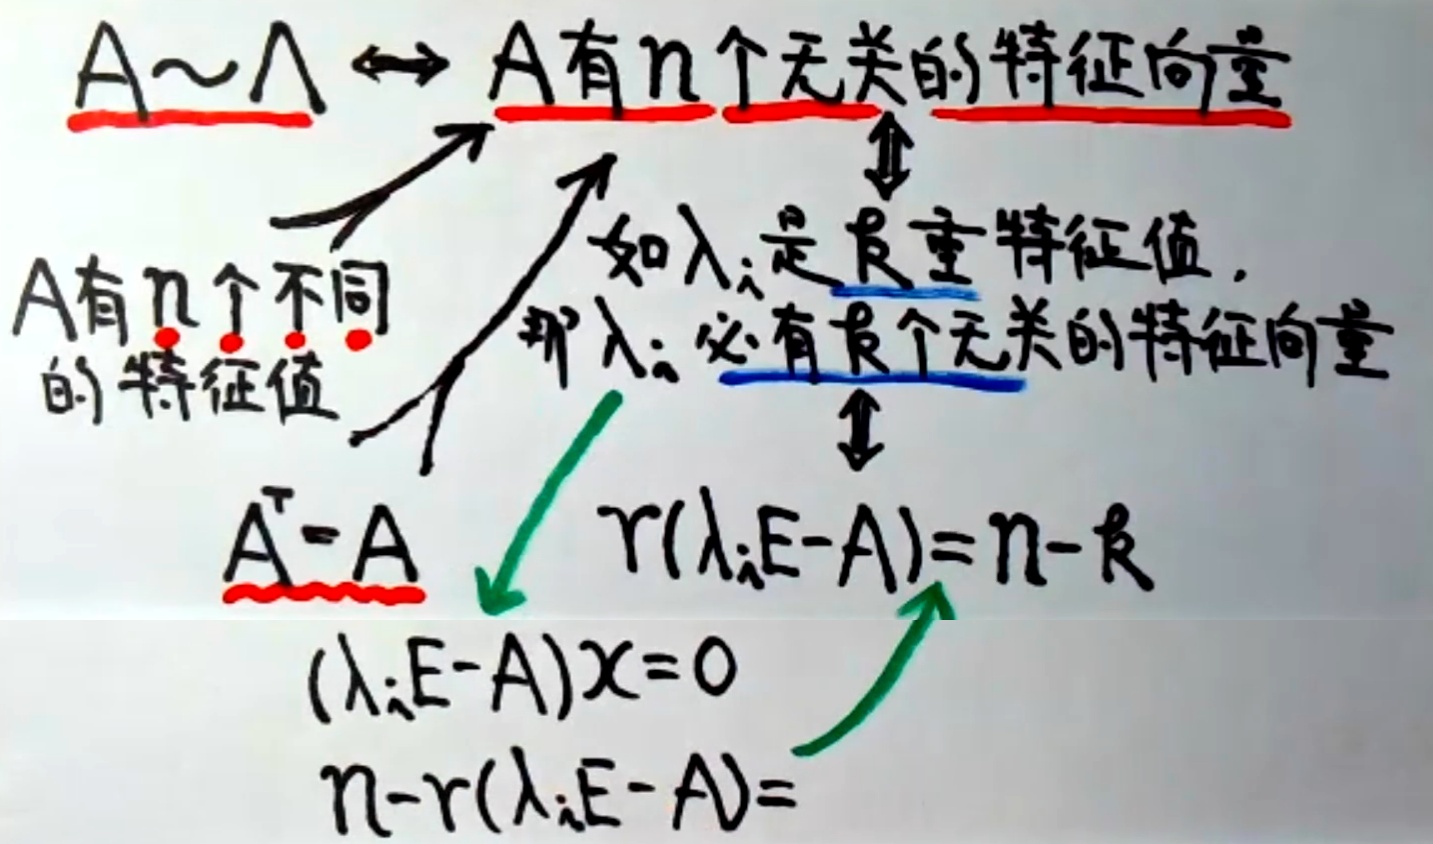 A~Λ ↔ A有n个无关的特征向量
如λᵢ是k重特征值,
那λᵢ必有k个无关的特征向量
A有n个不同
的特征值
Aᵀ=A
r(λᵢE-A)=n-k
(λᵢE-A)x=0
n-r(λᵢE-A)=